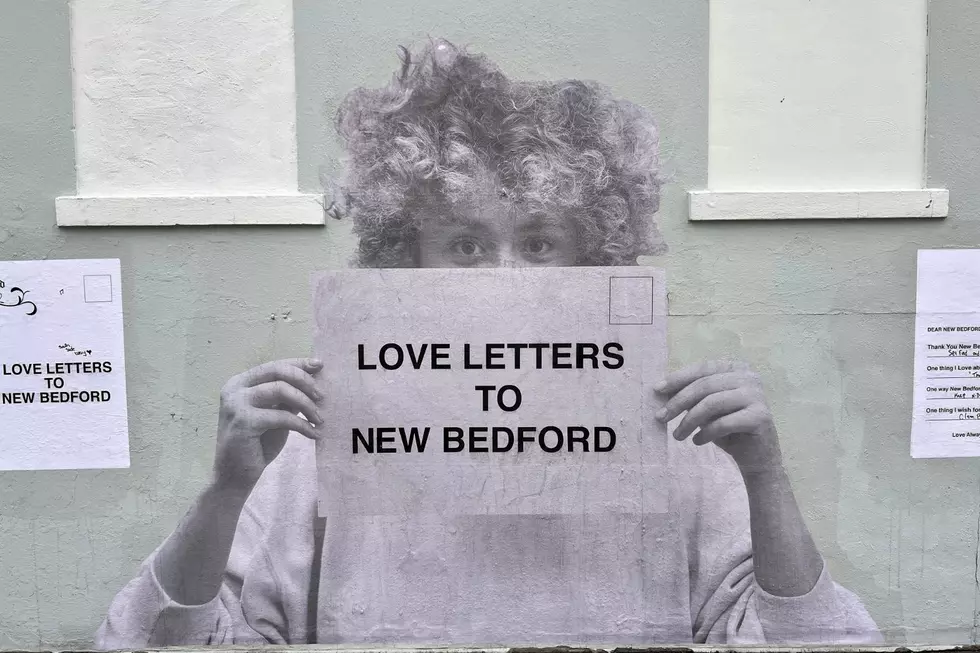 LOVE LETTERS
TO
NEW BEDFORD
LOVE LETTERS
TO
NEW BEDFORD
DEAR NEW BEDFORD
Thank You New Be
One thing I Love ab
One way New Bedfo
One thing I wish fo
Love Alway